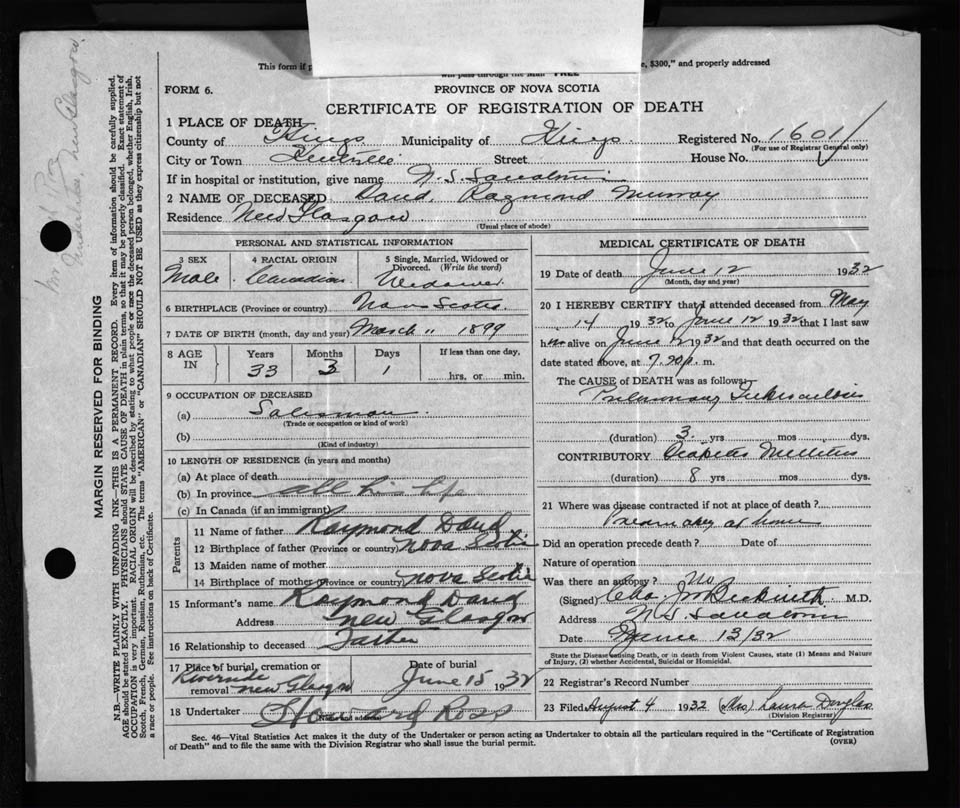 This form if p , $300," and properly addressed
will pass through the Mail FREE
FORM 6.
PROVINCE OF NOVA SCOTIA
CERTIFICATE OF REGISTRATION OF DEATH
1 PLACE OF DEATH
County of Kings Municipality of Kings Registered No. 1601
(For use of Registrar General only)
City or Town Kentville Street House No.
If in hospital or institution, give name N. S. Sanatorium
2 NAME OF DECEASED David, Raymond Murray
Residence New Glasgow
(Usual place of abode)
PERSONAL AND STATISTICAL INFORMATION
3 SEX 4 RACIAL ORIGIN 5 Single, Married, Widowed or Divorced. (Write the word)
Male Canadian Widower
6 BIRTHPLACE (Province or country) Nova Scotia
7 DATE OF BIRTH (month, day and year) March 11 1899
8 AGE IN Years Months Days If less than one day,
33 3 1 hrs. or min.
9 OCCUPATION OF DECEASED
(a) Salesman
(Trade or occupation or kind of work)
(b)
(Kind of industry)
10 LENGTH OF RESIDENCE (in years and months)
(a) At place of death
(b) In province all his life
(c) In Canada (if an immigrant)
Parents
11 Name of father Raymond David
12 Birthplace of father (Province or country) Nova Scotia
13 Maiden name of mother
14 Birthplace of mother (Province or country) Nova Scotia
15 Informant's name Raymond David
Address New Glasgow
16 Relationship to deceased Father
17 Place of burial, cremation or Date of burial
Riverside
removal New Glasgow June 15 1932
18 Undertaker Howard Ross
(Name and address)
MEDICAL CERTIFICATE OF DEATH
19 Date of death June 12 1932
(Month, day and year)
20 I HEREBY CERTIFY that I attended deceased from May
14 1932 to June 12 1932 that I last saw
him alive on June 12 1932 and that death occurred on the
date stated above, at 7.20 p. m.
The CAUSE of DEATH was as follows:
Pulmonary Tuberculosis
(duration) 3 yrs mos dys.
CONTRIBUTORY Diabetes Mellitus
(duration) 8 yrs. mos. dys.
21 Where was disease contracted if not at place of death?
Presumably at home
Did an operation precede death? Date of
Nature of operation
Was there an autopsy? No
(Signed) Chas. J. W. Beckwith M.D.
Address N. S. Sanatorium
Date June 13/32
State the Disease causing Death, or in death from Violent Causes, state (1) Means and Nature
of Injury, (2) whether Accidental, Suicidal or Homicidal.
22 Registrar's Record Number
23 Filed August 4 1932 (Mrs) Laura Douglas
(Division Registrar)
Sec. 46—Vital Statistics Act makes it the duty of the Undertaker or person acting as Undertaker to obtain all the particulars required in the "Certificate of Registration
of Death" and to file the same with the Division Registrar who shall issue the burial permit. (OVER)
MARGIN RESERVED FOR BINDING
N.B.—WRITE PLAINLY WITH UNFADING INK—THIS IS A PERMANENT RECORD. Every item of information should be carefully supplied.
AGE should be stated EXACTLY. PHYSICIANS should STATE CAUSE OF DEATH in plain terms, so that it may be properly classified. Exact statement of
OCCUPATION is very important. RACIAL ORIGIN will be described by stating to what people or race the deceased person belonged, whether English, Irish,
Scotch, French, German, Russian, Ruthenian, etc. The terms "AMERICAN" or "CANADIAN" SHOULD NOT BE USED as they express citizenship but not
a race or people. See instructions on back of Certificate.
Undertaker, New Glasgow.